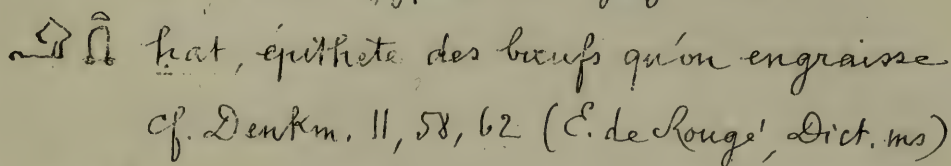 hat, épithete des bœufs qu'on engraisse
cf. Denkm. II, 58, 62 (E. de Rougé, Dict. ms)